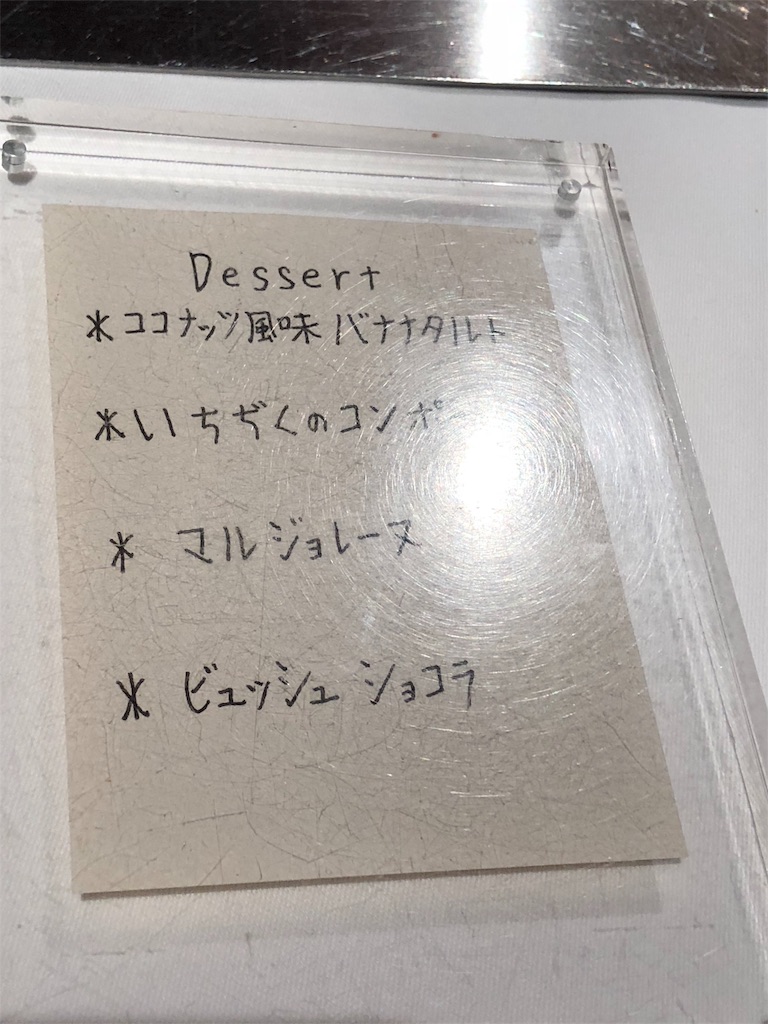 Dessert
*ココナッツ風味 バナナタルト
*いちぢくの
* マルジョレーヌ
* ビュッシュ ショコラ